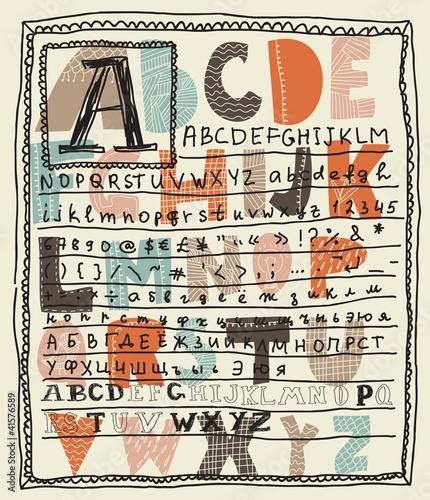 ABCDE
A
ABCDEFGHIJKLM
FGHIJK
NOPQRSTUVWXYZ abcdefgh
ijklmnopqrstuvwxyz 12345
LMNOP
67890@$€£¥ " “ « » !?%&*
абвгдеёжзиклм
нопрстуфхцчшщъыьэюя
QRSTU
АБВГДЕЁЖЗИЙКЛМНОПРСТ
УФХЦЧШЩЪЬЭЮЯ
ABCDEFGHIJKLMNOPQ
RSTUVWXYZ
VWXYZ
41576589